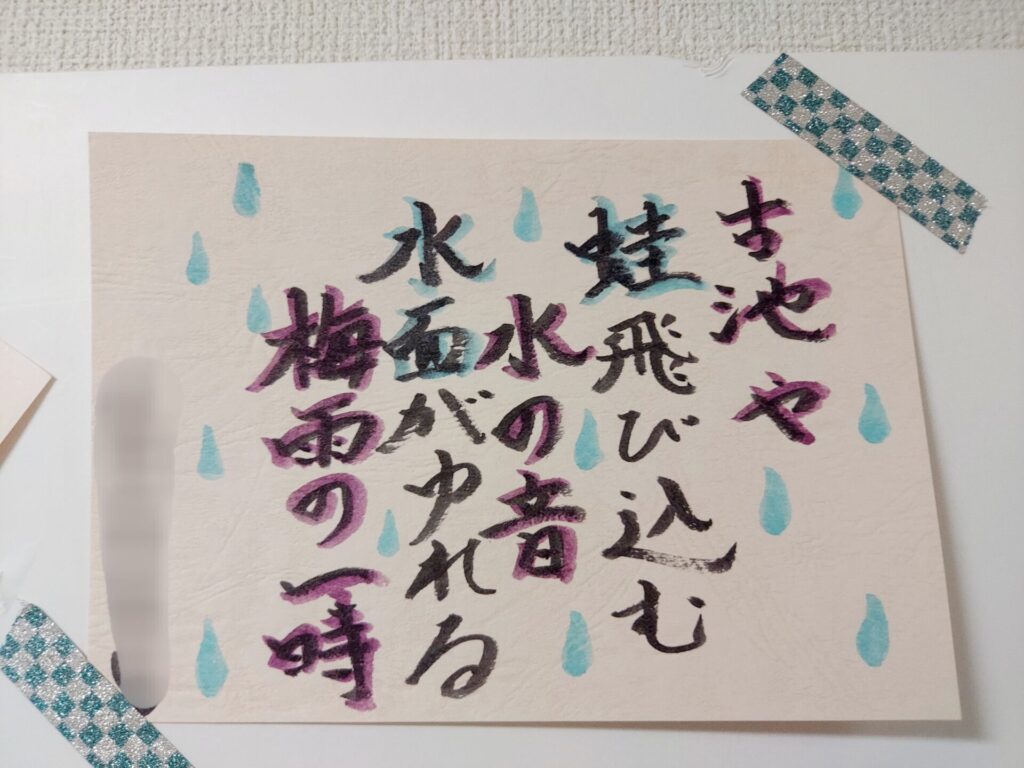 古池や
蛙飛び込む
水の音
水面がゆれる
梅雨の一時